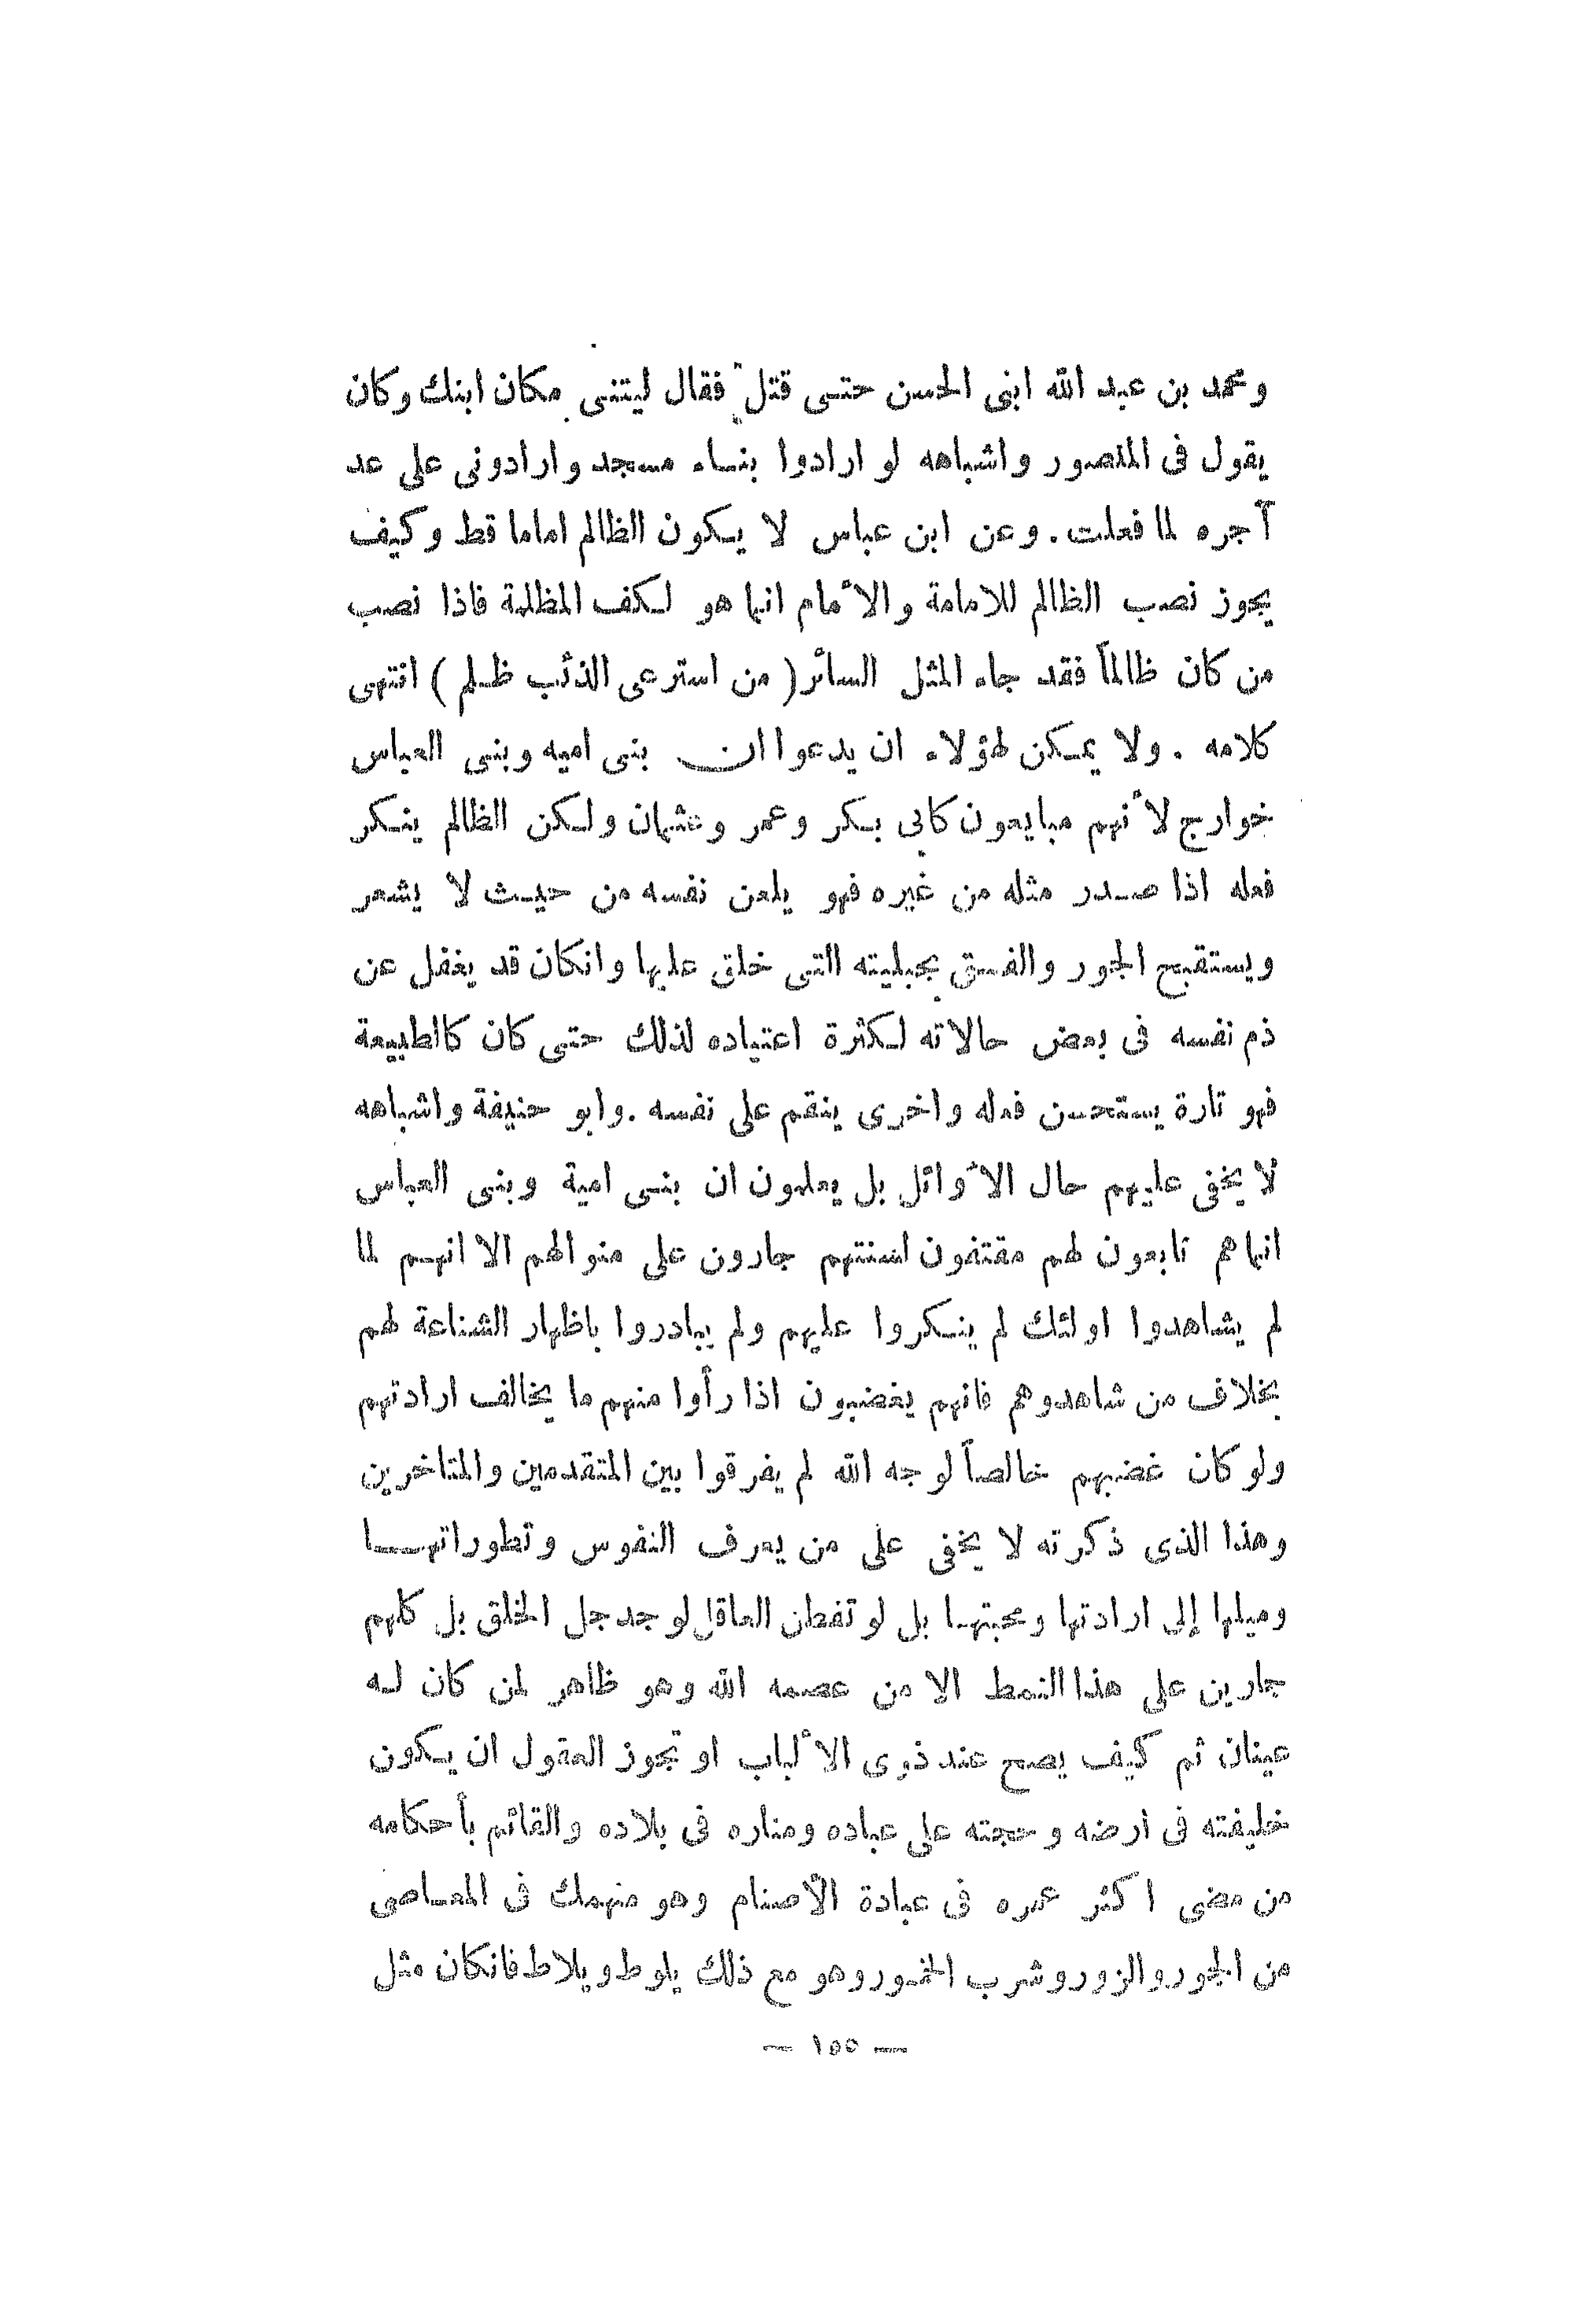 ومحمد بن عبد الله ابنى الحسن حتى قتل فقال ليتنى مكان ابنك وكان
يقول فى المنصور واشباهه لو ارادوا بناء مسجد وارادونى على عد
آجره لما فعلت . وعن ابن عباس لا يكون الظالم اماما قط وكيف
يجوز نصب الظالم للامامة والأمام انما هو لكف المظلمة فاذا نصب
من كان ظالماً فقد جاء المثل السائر ( من استرعى الذئب ظلم ) انتهى
كلامه . ولا يمكن لهؤلاء ان يدعوا ان بنى اميه وبنى العباس
خوارج لأنهم مبايعون كابى بكر وعمر وعثمان ولكن الظالم ينكر
فعله اذا صدر مثله من غيره فهو يلعن نفسه من حيث لا يشعر
ويستقبح الجور والفسق بجبليته التى خلق عليها وانكان قد يغفل عن
ذم نفسه فى بعض حالاته لكثرة اعتياده لذلك حتى كان كالطبيعة
فهو تارة يستحسن فعله واخرى ينقم على نفسه . وابو حنيفة واشباهه
لا يخفى عليهم حال الأوائل بل يعلمون ان بنى امية وبنى العباس
انما هم تابعون لهم مقتفون لسنتهم جارون على منوالهم الا انهم لما
لم يشاهدوا اولئك لم ينكروا عليهم ولم يبادروا باظهار الشناعة لهم
بخلاف من شاهدوهم فانهم يغضبون اذا رأوا منهم ما يخالف ارادتهم
ولو كان غضبهم خالصاً لوجه الله لم يفرقوا بين المتقدمين والمتاخرين
وهذا الذى ذكرته لا يخفى على من يعرف النفوس وتطوراتها
وميلها إلى ارادتها ومحبتها بل لو تفطن العاقل لوجد جل الخلق بل كلهم
جارين على هذا النمط الا من عصمه الله وهو ظاهر لمن كان له
عينان ثم كيف يصح عند ذوى الألباب او تجوز العقول ان يكون
خليفته فى أرضه وحجته على عباده ومناره فى بلاده والقائم بأحكامه
من مضى اكثر عمره فى عبادة الأصنام وهو منهمك فى المعاصى
من الجور والزور وشرب الخمور وهو مع ذلك يلوط ويلاط فانكان مثل
— ١٥٥ —